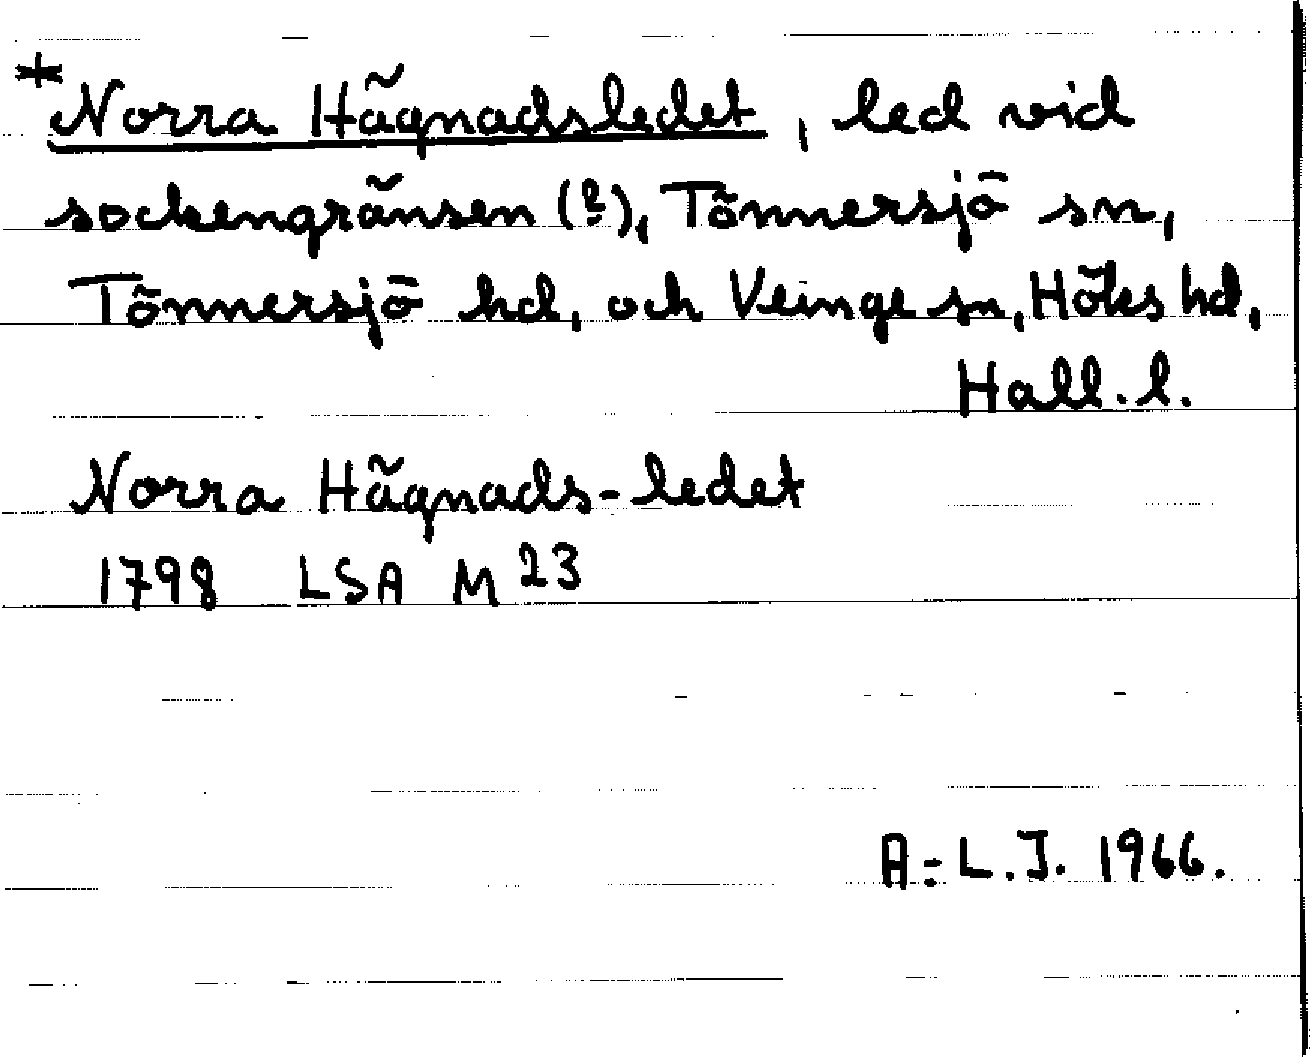 *Norra Hägnadsledet, led vid
sockengränsen (?), Tönnersjö sn,
Tönnersjö hd, och Veinge sn, Höks hd,
Hall. l.
Norra Hägnads-ledet
1798 LSA M 23
A-L.J. 1966.